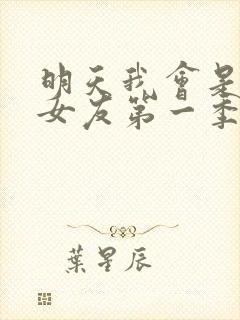 明天我會是
女友第一季
葉星辰